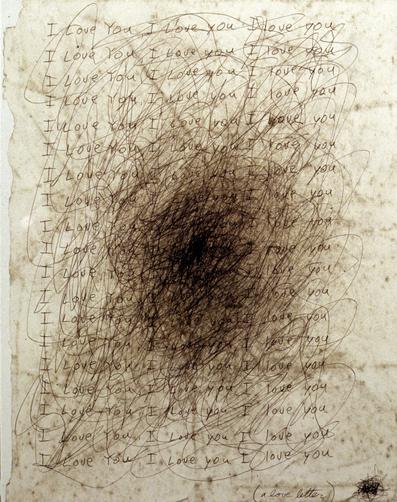 I Love You I Love you I love you
I Love You I Love you I love you
I Love You I Love you I love you
I Love You I Love you I love you
I Love You I Love you I love you
I Love You I Love you I love you
I Love You I Love you I love you
I Love You I you I love you
I Love You I love you
I Love I love you
I Love I love you
I Love I love you
I Love I love you
I Love You I I love you
I Love You I Love you I love you
I Love You I Love you I love you
I Love You I Love you I love you
I Love You I Love you I love you
I Love You I Love you I love you
(a love letter)